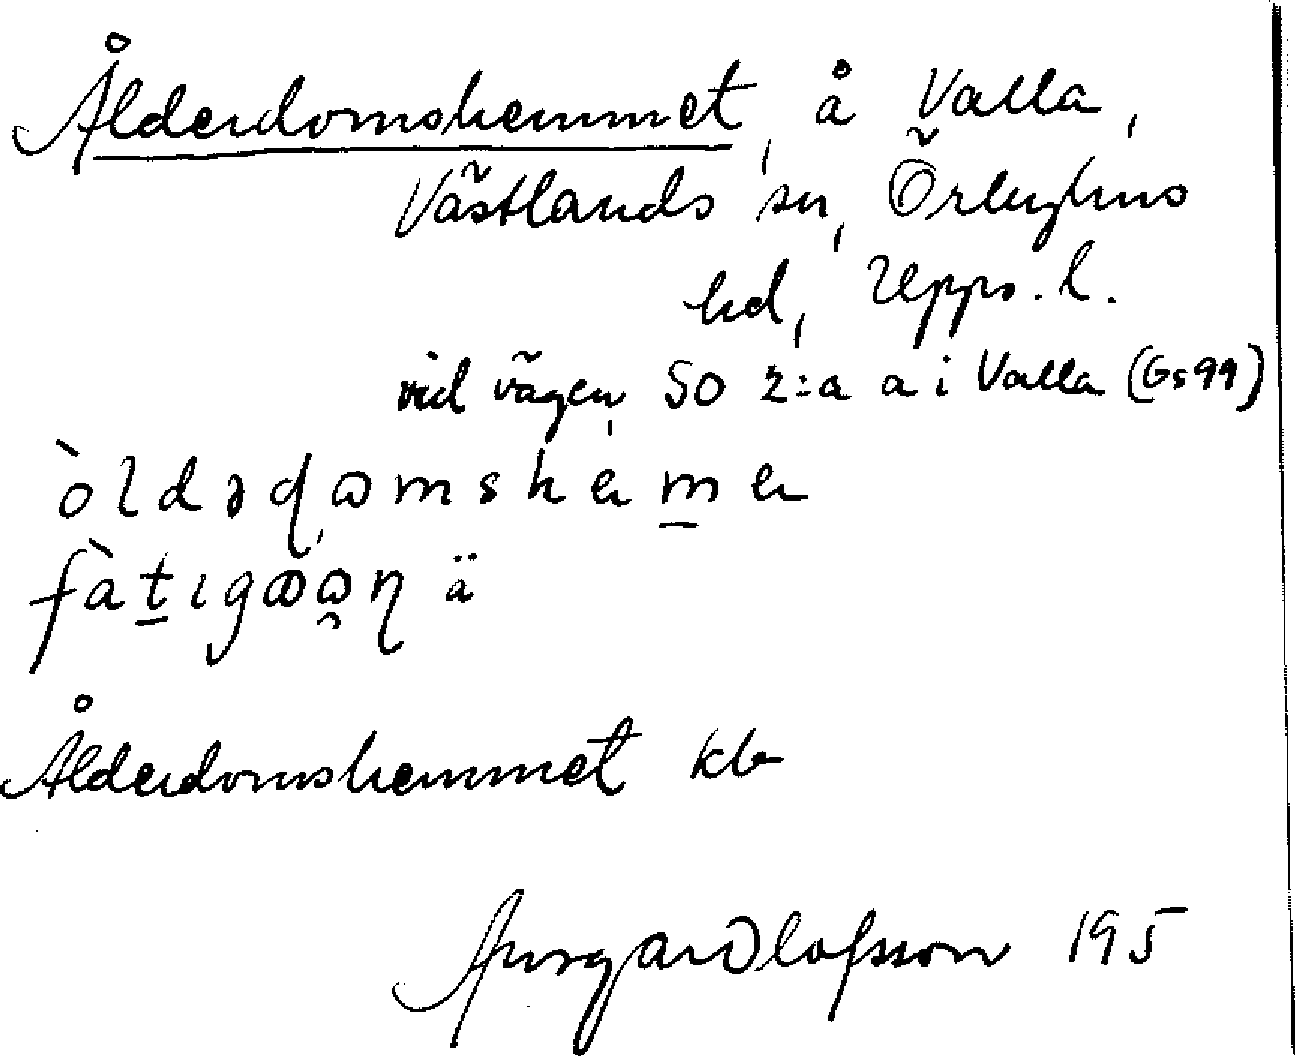 Ålderdomshemmet, å Valla,
Västlands sn, Örbyhus
hd, Upps. l.
vid vägen SO z:a a i Valla (Gs99)
òldədωmshemer
fàtıgωωη ä
Ålderdomshemmet kb
Ansgar Olofsson 195